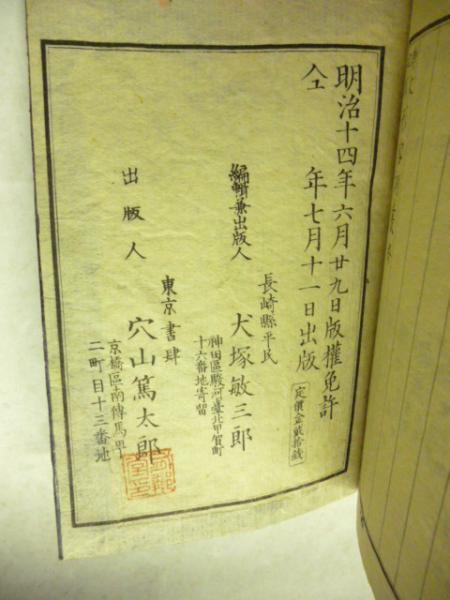 明治十四年六月廿九日版權免許
仝 年七月十一日出版
定價金貳拾錢
編輯兼出版人
長崎縣平民
犬塚敏三郎
神田區駿河臺北甲賀町
十六番地寄留
出版人
東京書肆
穴山篤太郎
京橋區南傳馬町
二町目十三番地